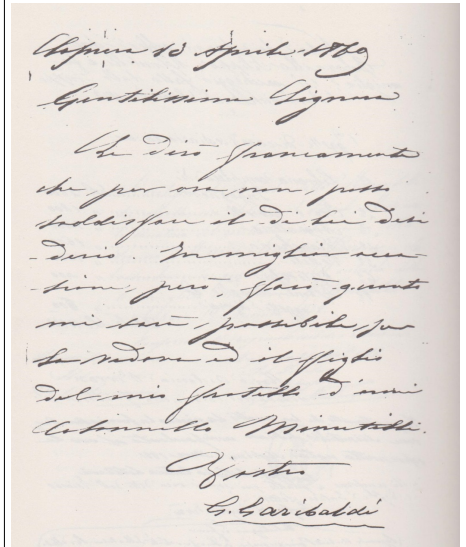 Caprera 13 Aprile 1869
Gentilissima Signora
Le dirò francamente
che, per ora, non, posso
soddisfare il di Lei desi
-derio. In miglior occa-
-sione, però, farò quanto
mi sarà, possibile, per
la vedova ed il figlio
del mio fratello d'armi
Colonnello Minutilli.
Vostro
G. Garibaldi